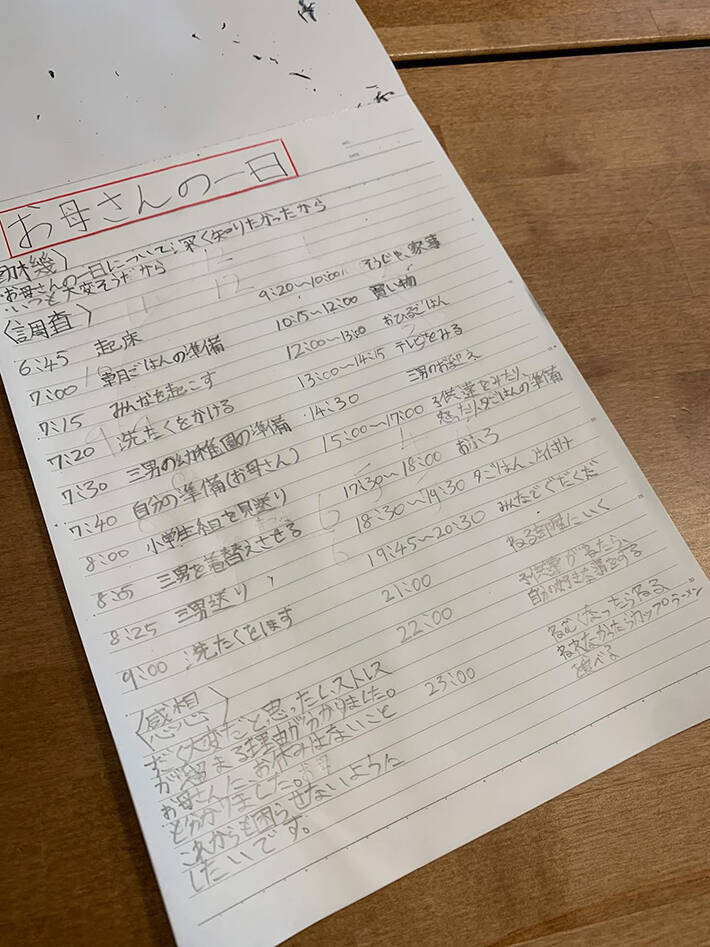 お母さんの一日
動機〉
お母さんの一日について深く知りたかったから
いつも大変そうだから
〈調査〉
6:45 起床
7:00 朝ごはんの準備
7:15 みんなを起こす
7:20 洗たくをかける
7:30 三男の幼稚園の準備
7:40 自分の準備(お母さん)
8:00 小学生組を見送り
8:05 三男を着替えさせる
8:25 三男送り
9:00 洗たくをほす
9:20〜10:00 そうじや、家事
10:15〜12:00 買い物
12:00〜13:00 おひるごはん
13:00〜14:15 テレビをみる
14:30 三男のお迎え
15:00〜17:00 子供達をみたり、
怒ったり、夕ごはんの準備
17:30〜18:00 おふろ
18:30〜19:30 夕ごはん、片付け
19:45〜20:30 みんなでぐだぐだ
21:00 ねる部屋にいく
22:00 子供達がねたら、
自分の好きな事をする
23:00 ねむくなったらねる
ねれなかったらカップラーメン
食べる
〈感想〉
すごく大変だと思ったしストレス
が溜まる理由が分かりました。
お母さんにお休みはないこと
と分かりました。
これからも困らせないように
したいです。